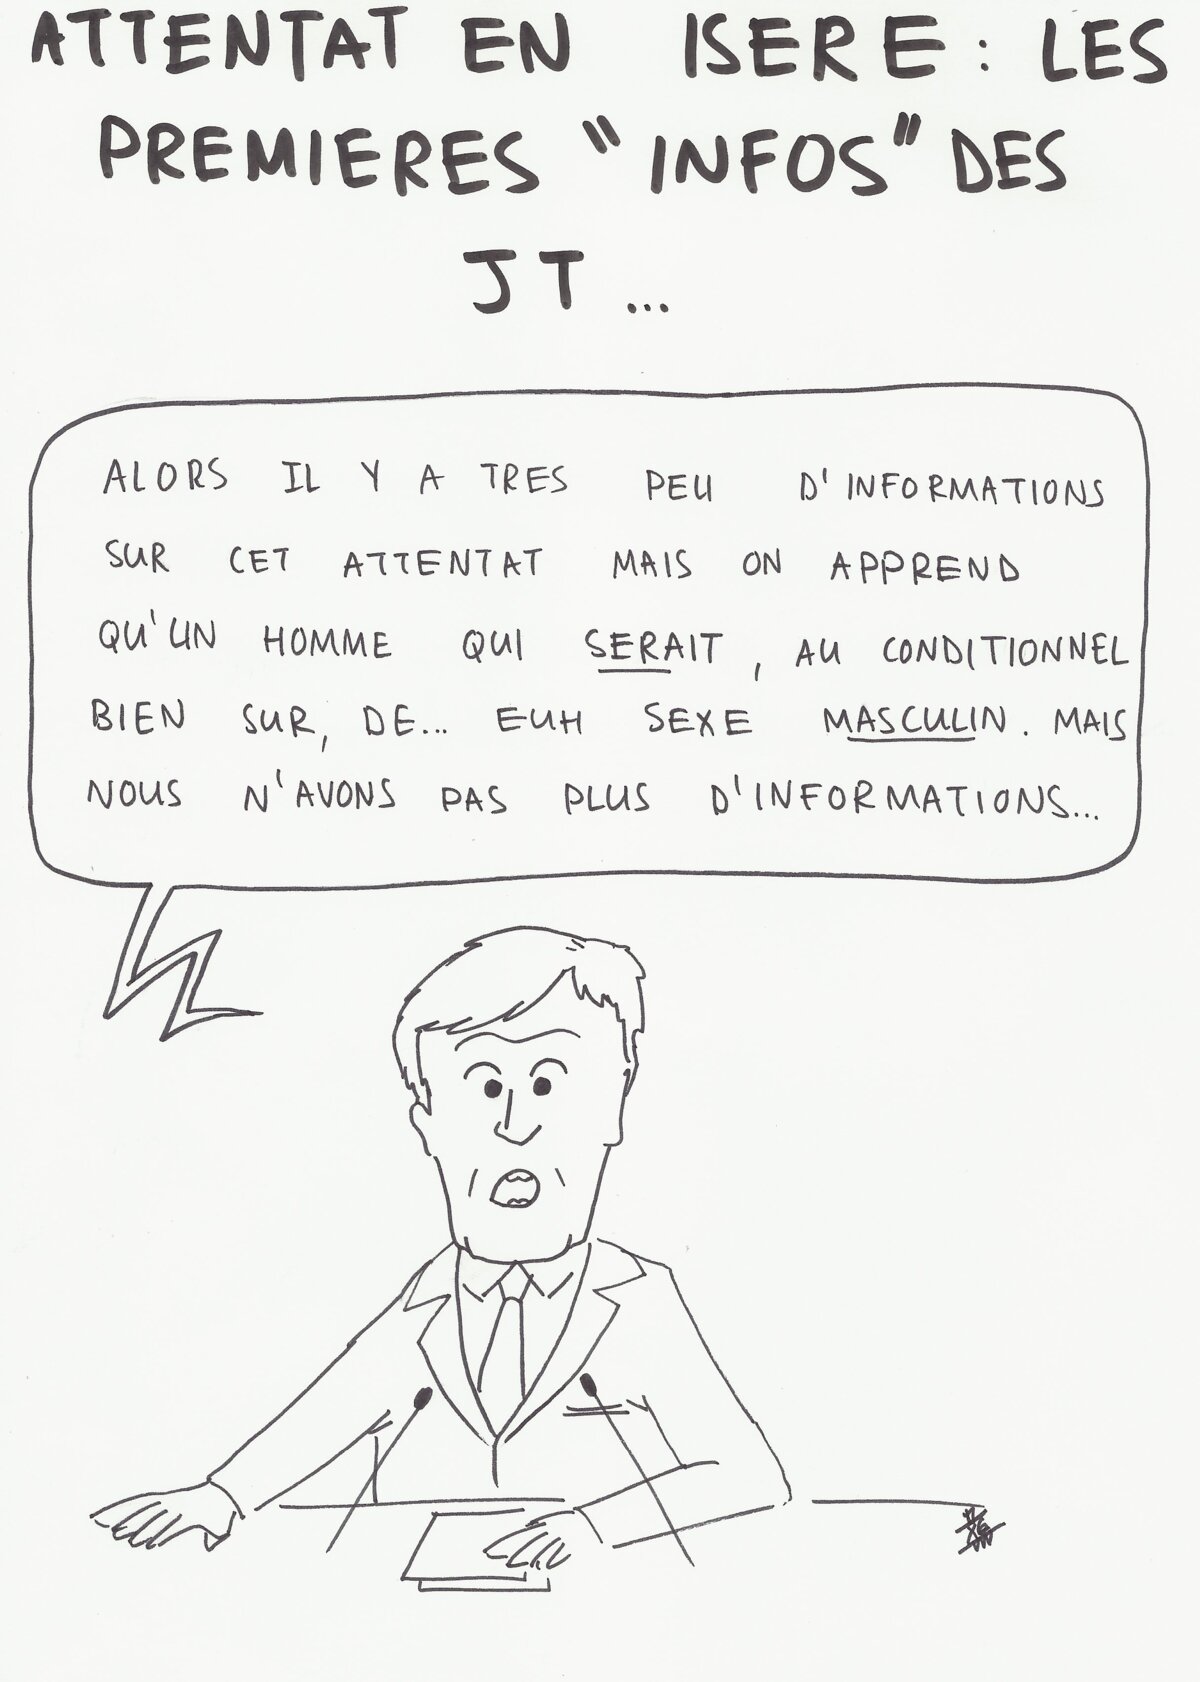 ATTENTAT EN ISERE : LES
PREMIERES "INFOS" DES
JT...
ALORS IL Y A TRES PEU D'INFORMATIONS
SUR CET ATTENTAT MAIS ON APPREND
QU'UN HOMME QUI SERAIT, AU CONDITIONNEL
BIEN SUR, DE... EUH SEXE MASCULIN. MAIS
NOUS N'AVONS PAS PLUS D'INFORMATIONS...